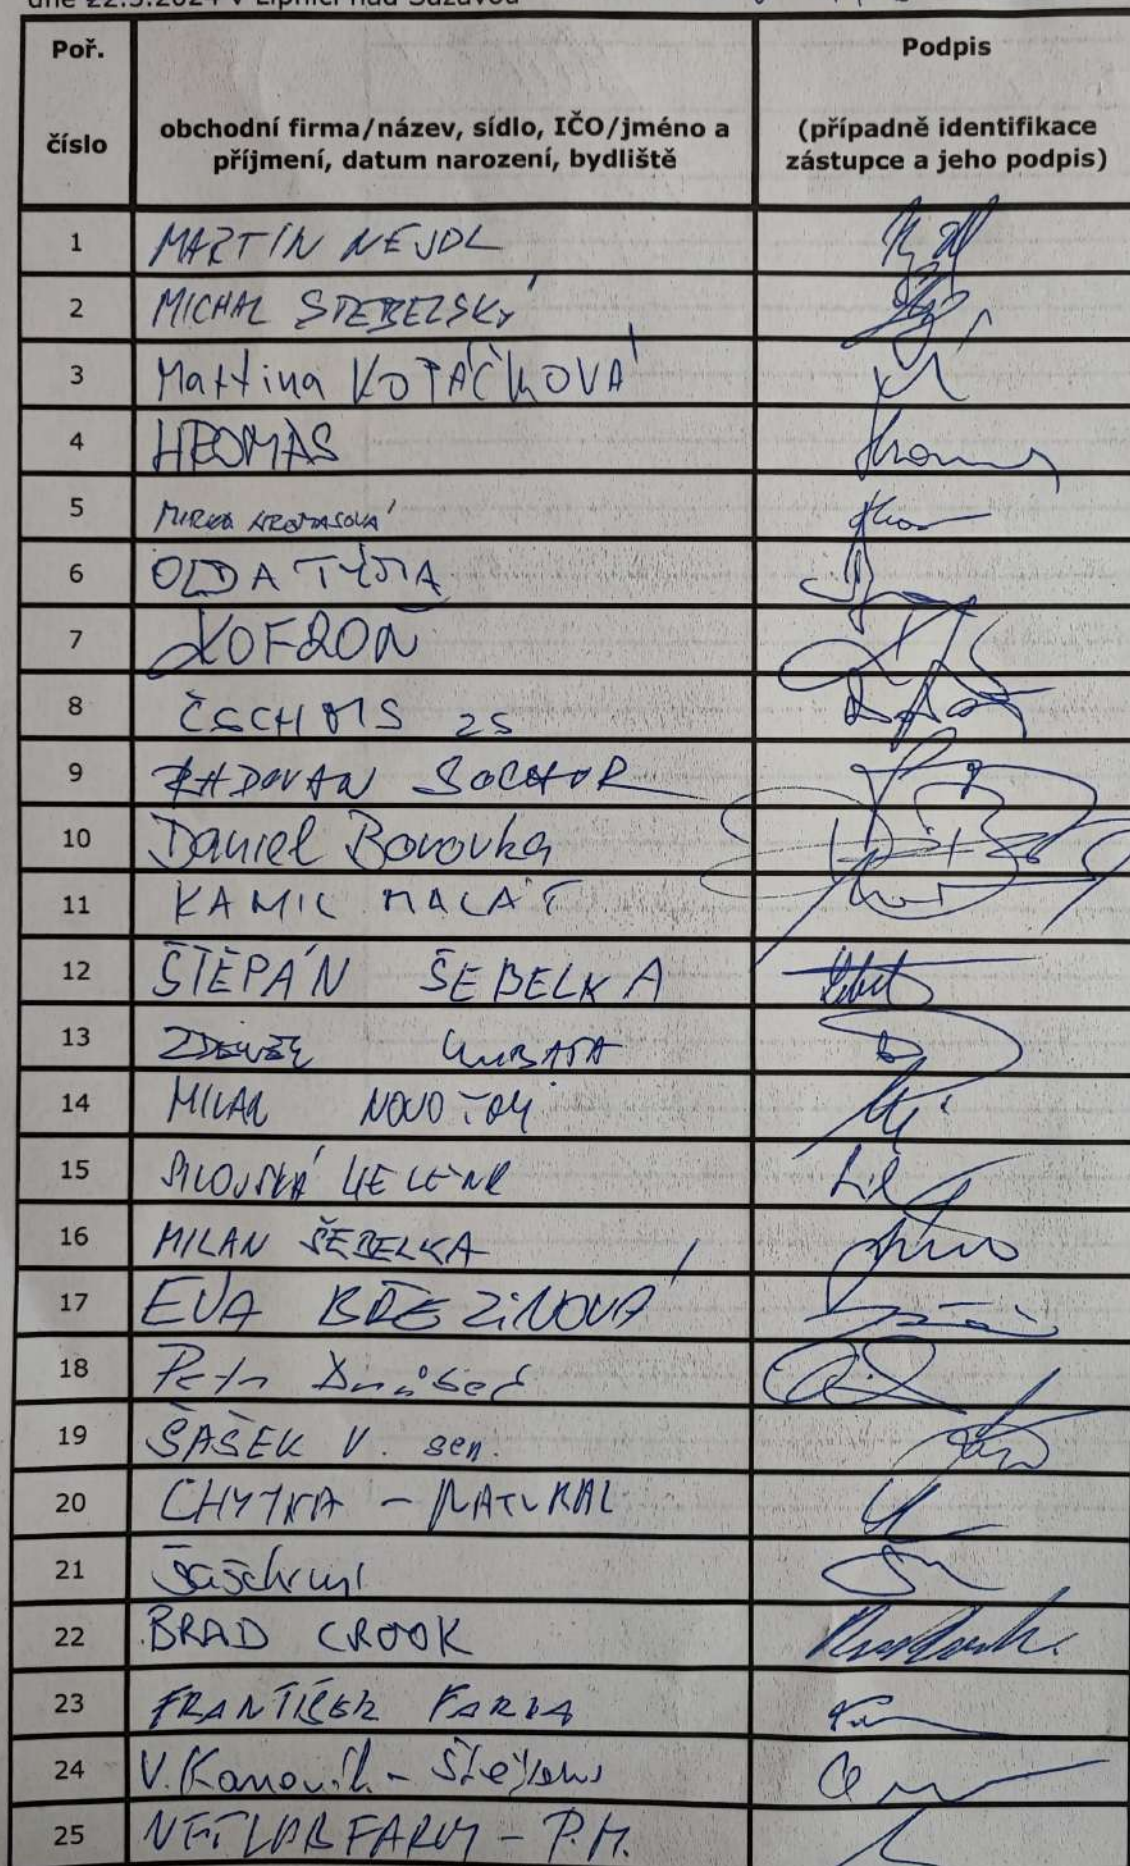 dne 22.5.2024 v Lipnici nad Sázavou
Poř. číslo
obchodní firma/název, sídlo, IČO/jméno a
příjmení, datum narození, bydliště
Podpis
(případně identifikace
zástupce a jeho podpis)
1 MARTIN NEJDL
2 MICHAL STEBELSKÝ
3 Martina KOTÁČKOVÁ
4 HROMAS
5 MIRKA HROMASOVÁ
6 OLDA TÝMA
7 KOFROŇ
8 ČSCHMS ZS
9 RADOVAN SOCHOR
10 Daniel Borovka
11 KAMIL MALÁT
12 ŠTĚPÁN ŠEBELKA
13 ZDENĚK
14 MILAN NOVOTNÝ
15 HELENA
16 MILAN ŠEBELKA
17 EVA BŘEZINOVÁ
18 Petr
19 ŠAŠEK V. sen.
20 CHYTKA - NATURAL
21
22 BRAD CROOK
23 FRANTIŠEK FARKA
24 V.
25 NETLUB FARMY - P.M.